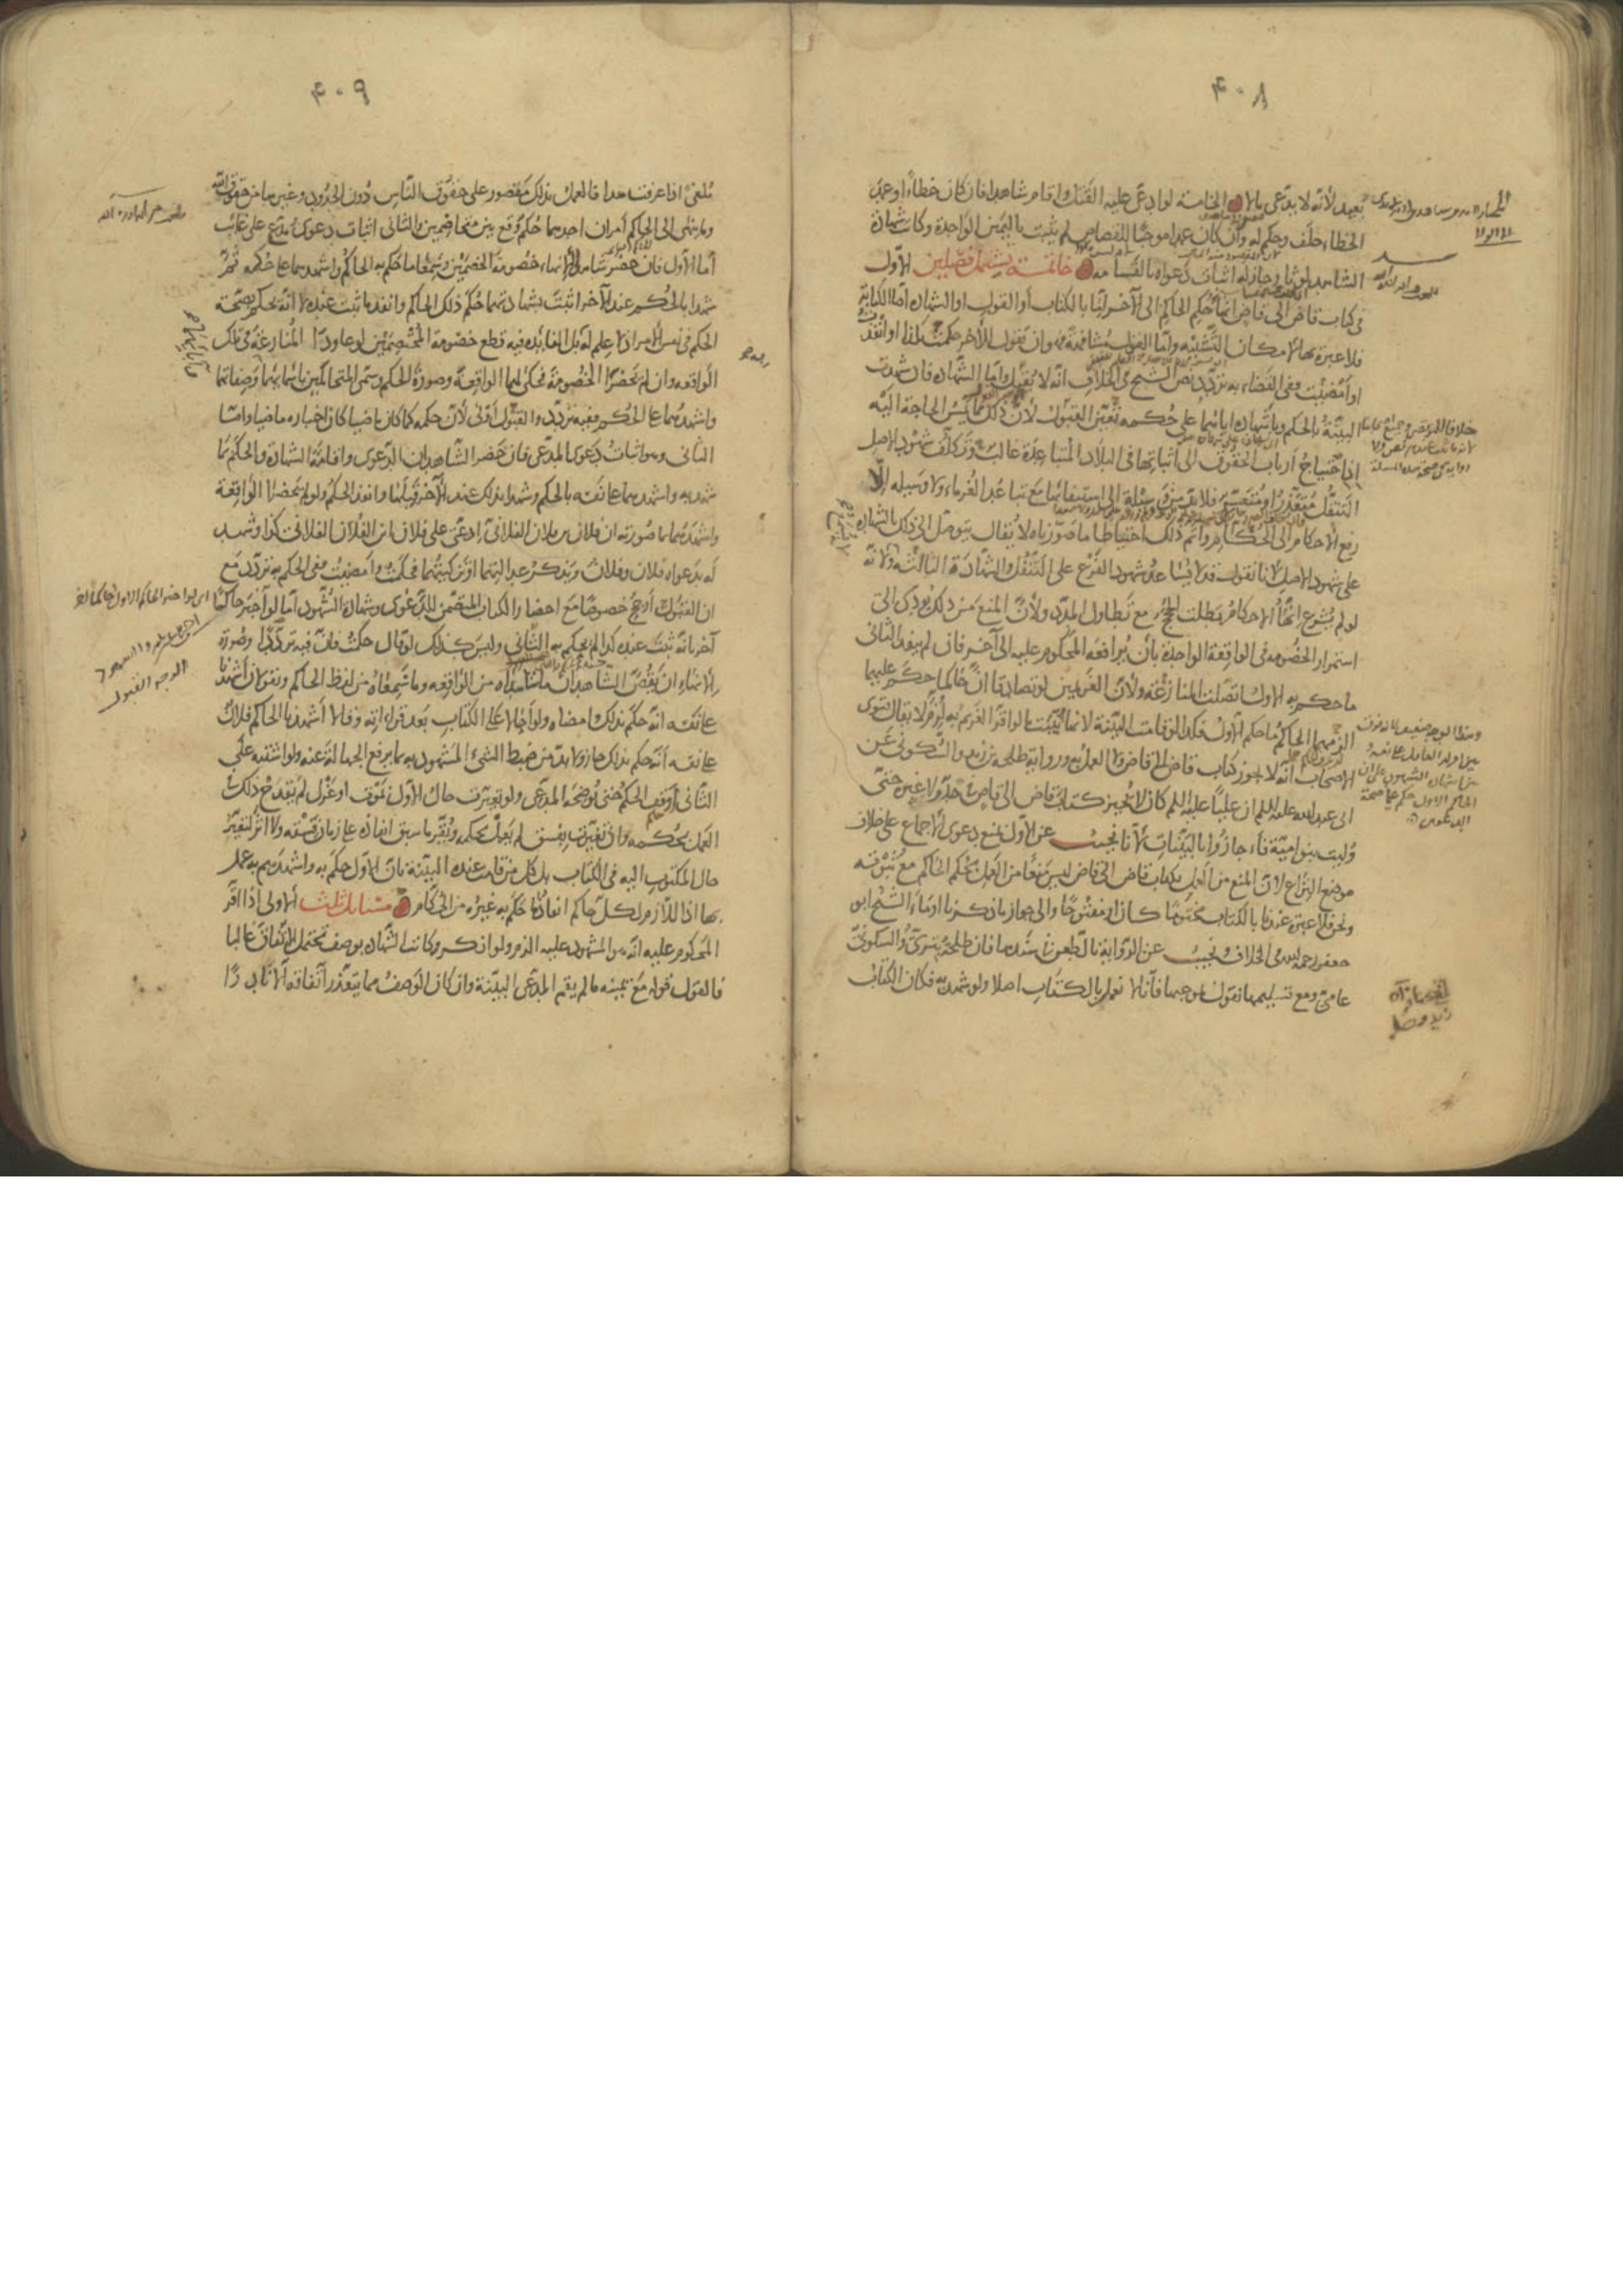 ٤٠٨
بعيد لأنه لا يدعى مالا الخامسة لو ادعى عليه القتل واقام شاهدا فان كان خطاءً او عمد
الخطاء حلف وحكم له وان كان عمدا موجبا للقصاص لم يثبت باليمين الواحدة وكانت شهادة
الشاهد لوثا وجاز له اثبات دعواه بالقسامة خاتمة يشتمل فصلين الأول
فى كتاب قاض الى قاض انهاء حكم الحاكم الى الآخر اما بالكتابة أو القول او الشهادة اما الكتابة
فلا عبرة بها لامكان التشبيه واما القول مشافهةً فهو ان يقول للآخر حكمت بكذا او انفذت
او امضيت ففى القضاء به تردد نص الشيخ فى الخلاف انه لا يقبل واما الشهادة فان شهدت
البينة بالحكم وباشهاده اياهما على حكمه تعين القبول لأن ذلك مما يمس الحاجة اليه
اذ احتياج أرباب الحقوق الى اثباتها فى البلاد المتباعدة غالب وتكلف شهود الاصل
التنقل متعذر او متعسر فلا بد من وسيلة الى استيفائها مع تباعد الغرماء ولا وسيلة الا
رفع الاحكام الى الحكام واتم ذلك احتياطا ما صورناه لا يقال يتوصل الى ذلك بالشهادة
على شهود الاصل لانا نقول قد لا يساعد شهود الفرع على التنقل والشهادة الثالثة ولأنه
لو لم يشرع انهاء الاحكام بطلت الحجج مع تطاول المدد ولأن المنع من ذلك يؤدى الى
استمرار الخصومة فى الواقعة الواحدة بأن يرافعه المحكوم عليه الى آخر فان لم ينفذ الثانى
ما حكم به الاول اتصلت المنازعة ولأن الغريمين لو تصادقا ان حاكما حكم عليهما
الزمهما الحاكم ما حكم الأول فكذا لو قامت البينة لانها تثبت ما لو اقر الغريم به لزم لا يقال فتوى
الاصحاب انه لا يجوز كتاب قاض الى قاض ولا العمل به ورواية طلحة بن زيد والسكونى عن
ابى عبدالله عليه السلم ان علياً عليه السلم كان لا يجيز كتاب قاض الى قاض فى حد ولا غيره حتى
وليت بنو امية فاجازوا بالبينات لأنا نجيب عن الأول بمنع دعوى الاجماع على خلاف
موضع النزاع لان المنع من العمل بكتاب قاض الى قاض ليس منعاً من العمل بحكم الحاكم مع ثبوته
ونحن فلا عبرة عندنا بالكتاب مختوما كان او مفتوحا والى جواز ما ذكرنا اومأ الشيخ ابو
جعفر رحمه الله فى الخلاف ونجيب عن الرواية بالطعن فى سندها فان طلحة بتري والسكونى
عامى ومع تسليمها نقول بموجبها فانا لا نعمل بالكتاب اصلا ولو شهد به فكان الكتاب
٤٠٩
ملغى اذا عرفت هذا فالعمل بذلك مقصور على حقوق الناس دون الحدود وغيرها من حقوق الله
وما ينتهى الى الحاكم أمران احدهما حكم وقع بين متخاصمين والثانى اثبات دعوى مدع على غائب
أما الأول فان حضر شاهدا الانهاء خصومة الخصمين وسمعا ما حكم به الحاكم واشهدهما على حكمه ثم
شهدا بالحكم عند الآخر اثبت بشهادتهما حكم ذلك الحاكم وانفذ ما ثبت عنده لا انه يحكم بصحة
الحكم فى نفس الأمر اذ لا علم له بل الفائدة فيه قطع خصومة المختصمين لو عاودا المنازعة فى تلك
الواقعه وان لم يحضرا الخصومة فحكى لهما الواقعة وصورة الحكم وسمى المتحاكمين باسمائهما وصفاتهما
واشهدهما على الحكم ففيه تردد والقبول أولى لأن حكمه كما كان ماضيا كان اخباره ماضيا واما
الثانى وهو اثبات دعوى المدعى فان حضر الشاهدان الدعوى واقامة الشهادة والحكم بما
شهد به واشهدهما على نفسه بالحكم وشهدا بذلك عند الآخر قبلها وانفذ الحكم ولو لم يحضرا الواقعة
واشهدهما بما صورته ان فلان بن فلان الفلانى ادعى على فلان ابن الفلان الفلانى كذا وشهد
له بدعواه فلان وفلان ويذكر عدالتهما او تزكيتهما فحكمت وامضيت ففى الحكم به تردد مع
ان القبول أرجح خصوصا مع احضار الكتاب المتضمن للدعوى وشهادة الشهود أما لو أخبر حاكما
آخر بانه ثبت عنده كذا لم يحكم به الثانى وليس كذلك لو قال حكمت فان فيه ترددا وصورة
الانهاء ان يقص الشاهدان ما شاهداه من الواقعه وما سمعاه من لفظ الحاكم ويقولان اشهدنا
على نفسه انه حكم بذلك وامضاه ولو أحالا على الكتاب بعد قراءته وقالا اشهدنا الحاكم فلان
على نفسه أنه حكم بذلك جاز ولا بد من ضبط الشئ المشهود به بما يرفع الجهالة عنه ولو اشتبه على
الثانى أوقف الحكم حتى يوضحه المدعى ولو تغيرت حال الأول بموت او عزل لم يقدح ذلك فى
العمل بحكمه وان تغيرت بفسق لم يعمل بحكمه ويقر ما سبق انفاذه على زمان فسقه ولا اثر لتغير
حال المكتوب اليه فى الكتاب بل كل من قامت عنده البينة بان الاول حكم به واشهدهم به عمل
بها اذ اللازم لكل حاكم انفاذ ما حكم به غيره من الحكام مسائل ثلث الاولى اذا اقر
المحكوم عليه انه هو المشهود عليه الزم ولو انكر وكانت الشهادة بوصف تحتمل الاتفاق غالبا
فالقول قوله مع يمينه ما لم يقم المدعى البينة وان كان الوصف مما يتعذر اتفاقه الا نادرا